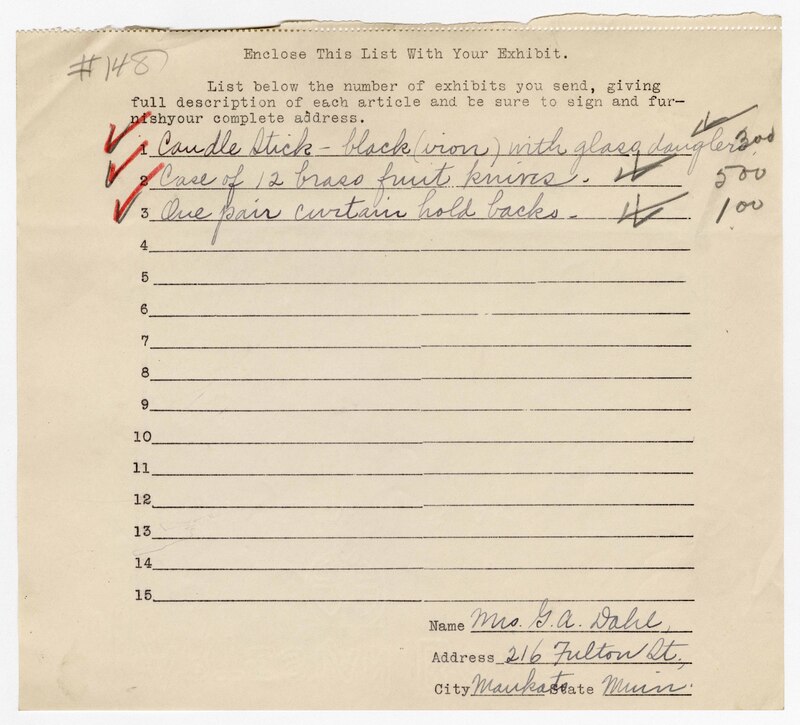 #148
Enclose This List With Your Exhibit.
List below the number of exhibits you send, giving
full description of each article and be sure to sign and fur-
nishyour complete address.
1 Candle Stick - black (iron) with glass danglers 300
2 Case of 12 brass fruit knives. 500
3 One pair curtain hold backs. 100
4
5
6
7
8
9
10
11
12
13
14
15
Name Mrs. G. A. Dahl,
Address 216 Fulton St.,
City Mankato State Minn.